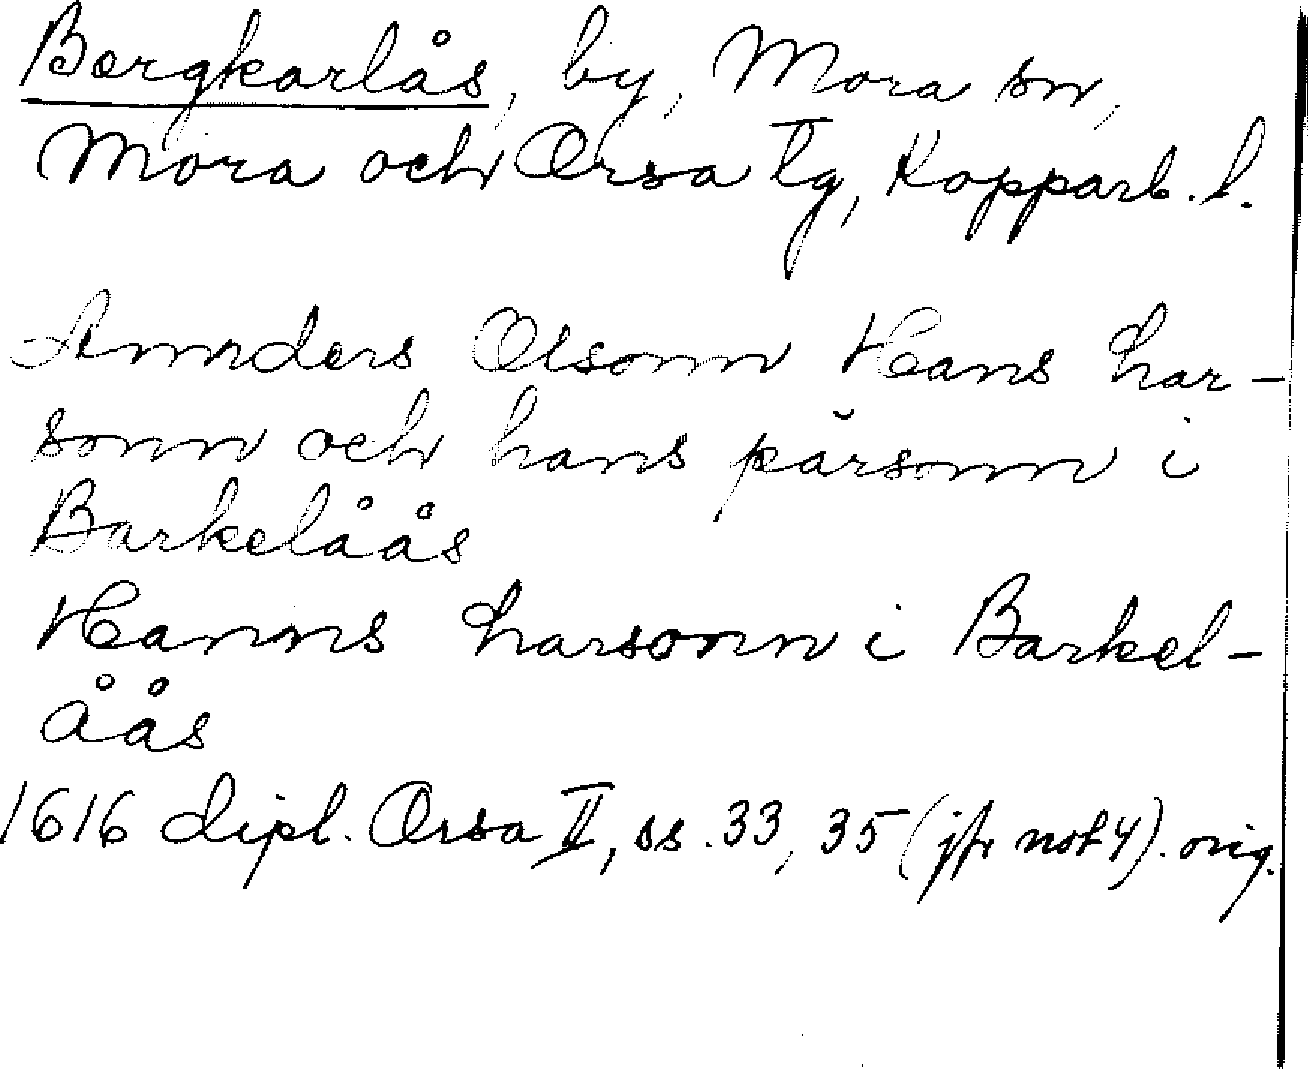 Bergkarlås, by, Mora sn,
Mora och Orsa tg, Kopparb. l.
Annders Olsonn Hans Lar-
sonn och hans pärsonn i
Barkelåås
Hanns Larsonn i Barkel-
åås
1616 dipl. Orsa II, ss. 33, 35 (jfr not 4). orig.